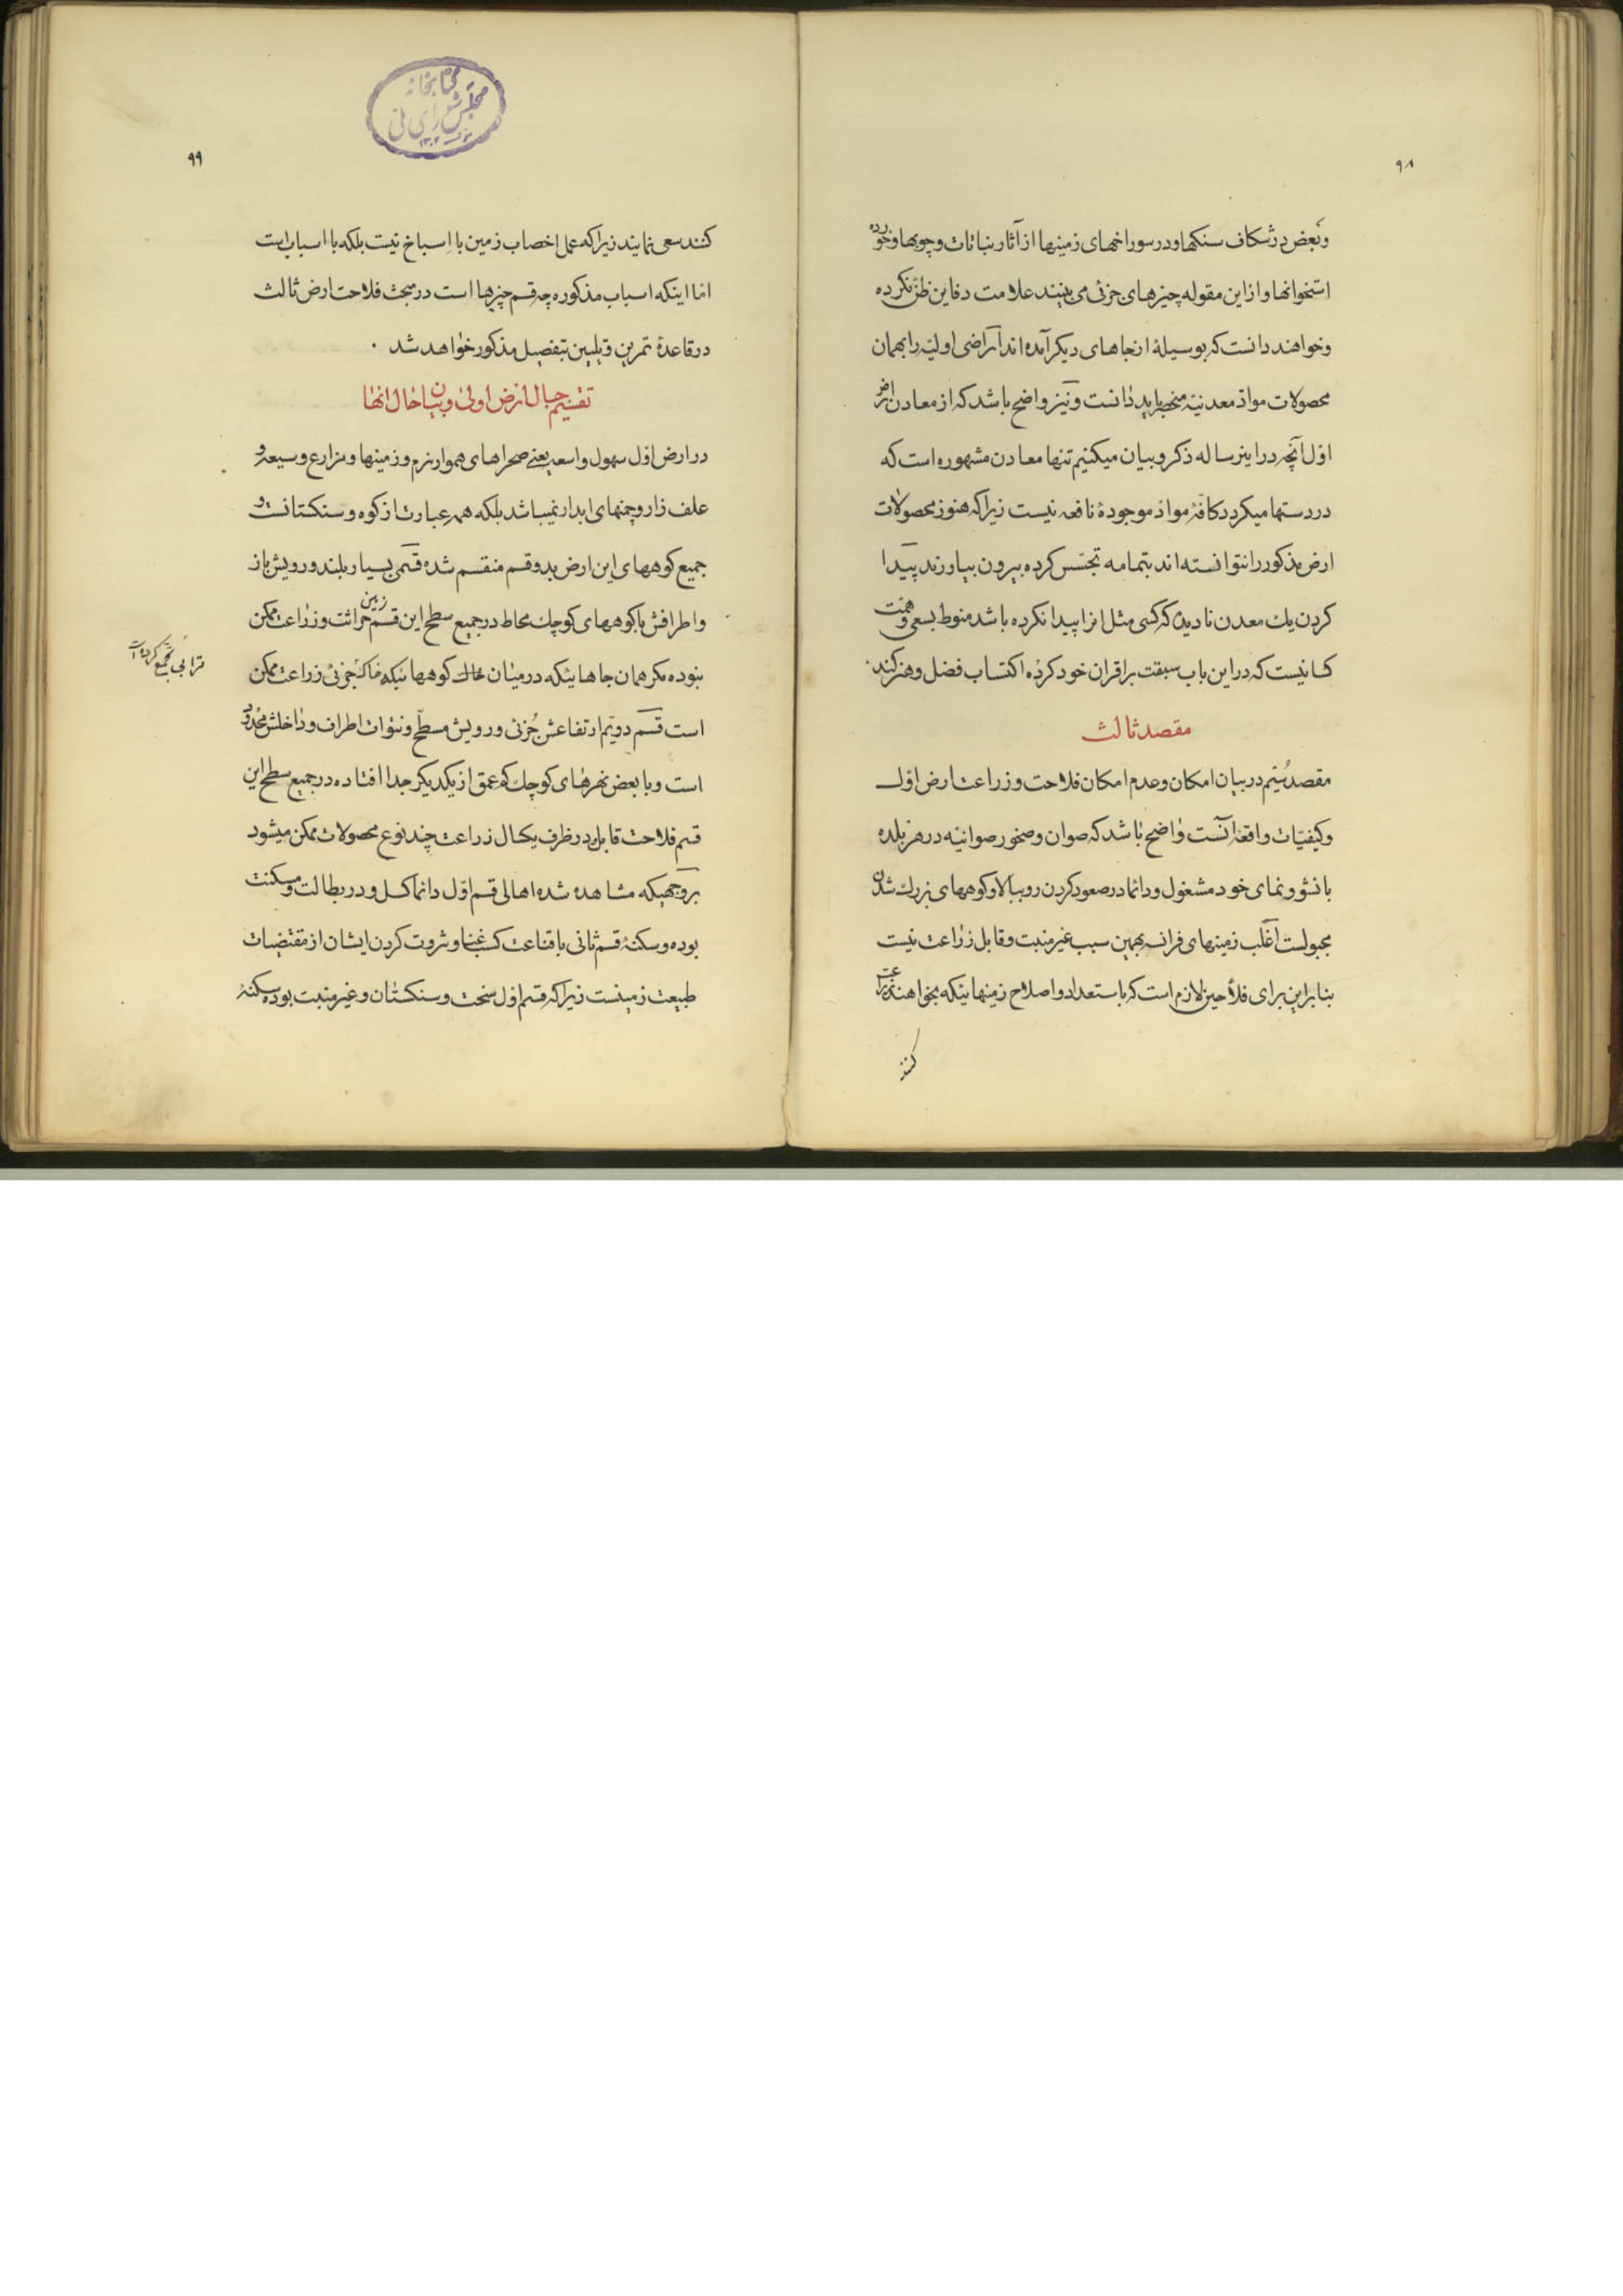 ۹۸
وبعض در شكاف سنكها و در سوراخهاى زمينها از آثار نباتات و چوبها و خورده
استخوانها و از اين مقوله چيزهاى جزئى مى بينند علامت دفاين ظن نكرده
و خواهند دانست كه بوسيلۀ از جاهاى ديكر آمده اند اراضى اوليه را بهمان
محصولات مواد معدنيه منحصر بايد دانست و نيز واضح باشد كه از معادن ارض
اول آنچه در اين رساله ذكر و بيان ميكنيم تنها معادن مشهوره است كه
در دستها ميكردد كافۀ مواد موجودۀ نافعه نيست زيرا كه هنوز محصولات
ارض مذكور را نتوانسته اند بتمامه تجسس كرده بيرون بياورند پيدا
كردن يك معدن ناديده كه كسى مثل انرا پيدا نكرده باشد منوط بسعى و همت
كسانيست كه در اين باب سبقت بر اقران خود كرده اكتساب فضل و هنر كنند
مقصد ثالث
مقصد سيم در بيان امكان و عدم امكان فلاحت و زراعت ارض اول
و كيفيات واقعۀ آنست واضح باشد كه صوان و صخور صوانيه در هر بلده
با نشو و نماى خود مشغول و دائما در صعود كردن رو ببالا و كوههاى بزرك شدن
مجبولست اغلب زمينهاى فرانسه بهمين سبب غير منبت و قابل زراعت نيست
بنابراين براى فلاحين لازم است كه باستعداد و اصلاح زمينهائيكه بخواهند زراعت
كنند
۹۹
كنند سعى نمايند زيرا كه عمل اخصاب زمين با اسباخ نيست بلكه با اسباب است
اما اينكه اسباب مذكوره چه قسم چيزها است در مبحث فلاحت ارض ثالث
در قاعدۀ تمرين و تليين بتفصيل مذكور خواهد شد
تقسيم جبال ارض اولى و بيان حال انها
در ارض اول سهول واسعه يعنى صحراهاى هموار نرم و زمينها و مزارع وسيعه و
علف زار و چمنهاى ابدار نميباشد بلكه همه عبارت از كوه و سنكستانست و
جميع كوههاى اين ارض بدو قسم منقسم شده قسمى بسيار بلند و رويش باز
و اطرافش با كوههاى كوچك محاط در جميع سطح اين قسم زمين حراثت و زراعت ممكن
نبوده مكر همان جاهائيكه در ميان خاك كوههائيكه خاك جزئى زراعت ممكن
ترابى تجمع كرده است
است قسم دويم ارتفاعش جزئى و رويش مسطح و نتوات اطراف و داخلش محدود
است و با بعض نهرهاى كوچك كم عمق از يكديكر جدا افتاده در جميع سطح اين
قسم فلاحت قابل در ظرف يكسال زراعت چند نوع محصولات ممكن ميشود
بروجهيكه مشاهده شده اهالى قسم اول دائما كسل و در بطالت و مسكنت
بوده و سكنۀ قسم ثانى با قناعت كسب غنا و ثروت كردن ايشان از مقتضيات
طبيعت زمينست زيرا كه قسم اول سخت و سنكستان و غير منبت بوده سكنۀ
كتابخانه
مجلس شوراى ملى
۱۳۰۲